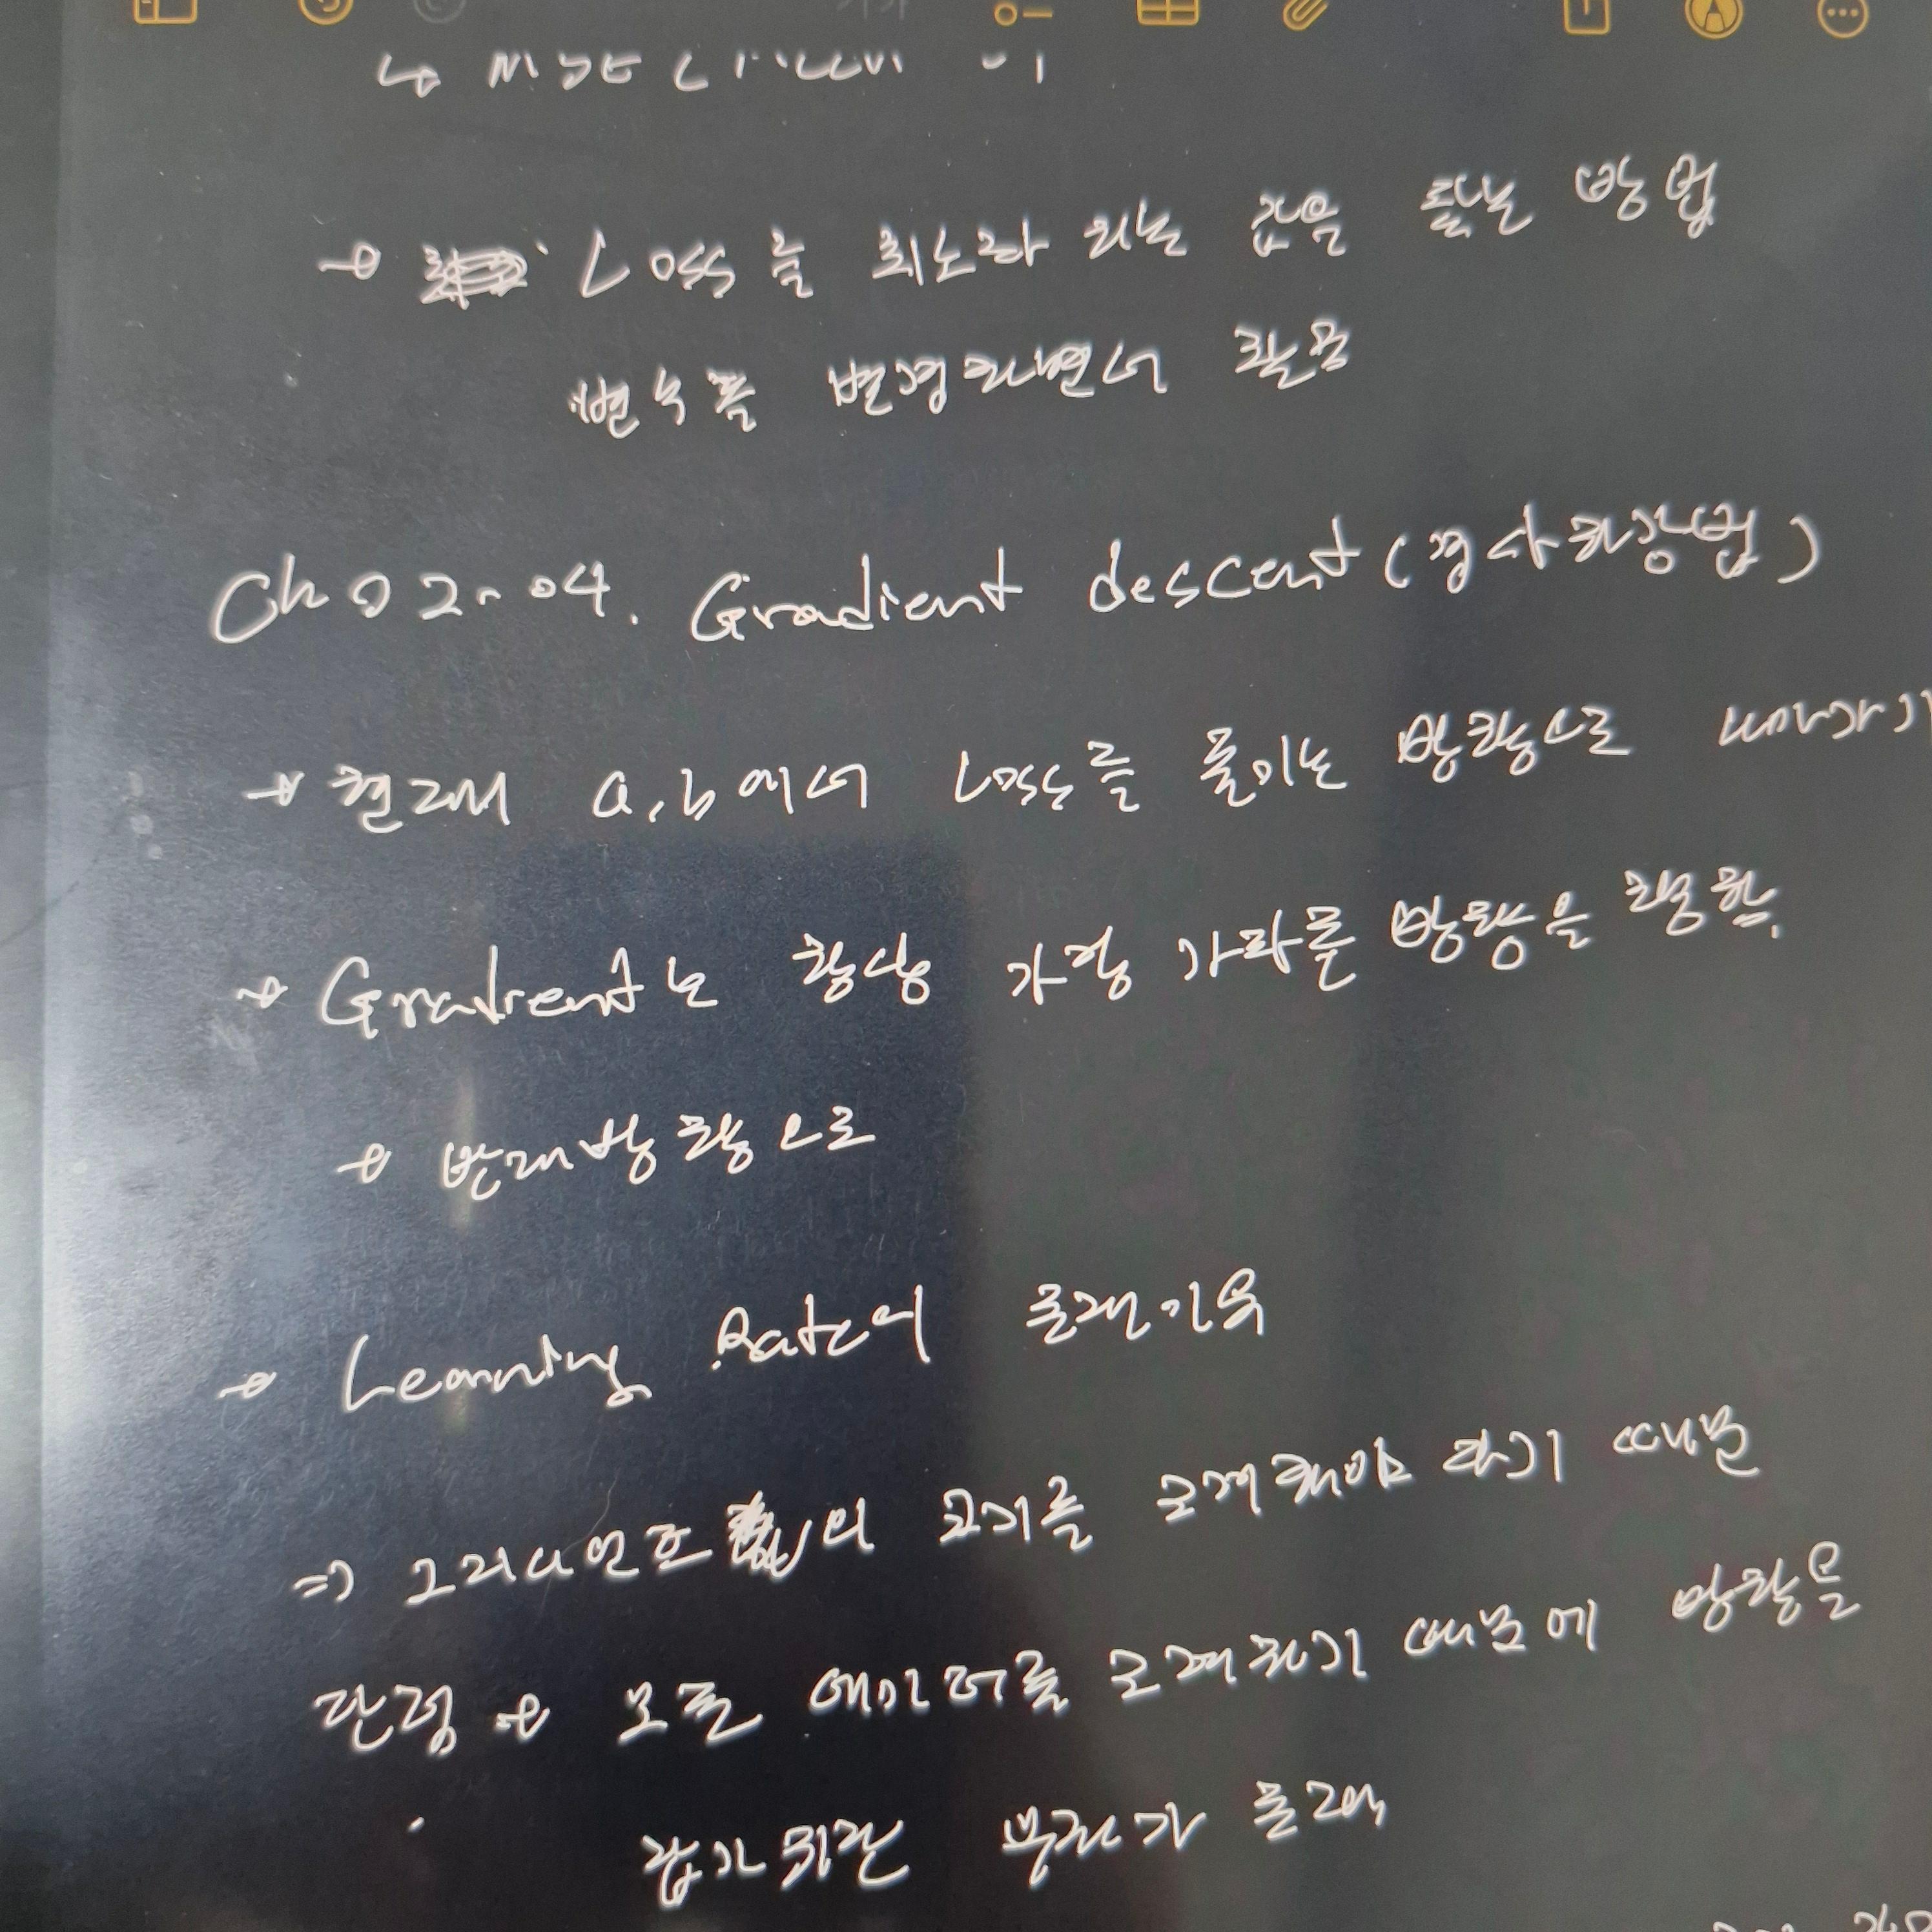 → Loss를 최소화 되는 값을 찾는 방법
변수를 변경하면서 활용
Ch 02-04. Gradient descent (경사하강법)
→ 현재 a, b에서 Loss를 줄이는 방향으로 나아가기
→ Gradient는 항상 가장 가파른 방향을 향함.
→ 반대방향으로
→ Learning Rate의 존재이유
⇒ 그라디언트의 크기를 조절해야 하기 때문
단점 → 모든 데이터를 고려하기 때문에 방향을
잡기위한 부하가 존재